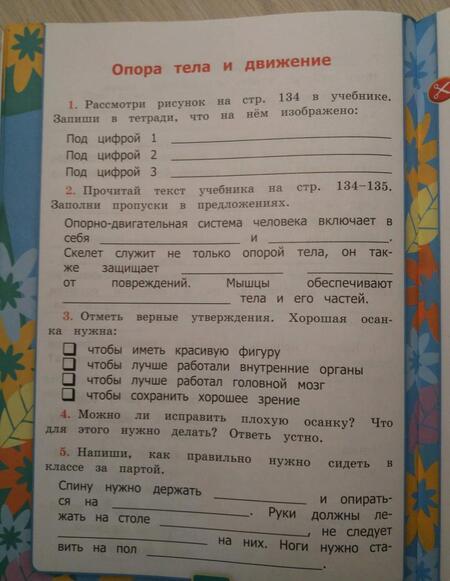 Опора тела и движение
1. Рассмотри рисунок на стр. 134 в учебнике.
Запиши в тетради, что на нём изображено:
Под цифрой 1
Под цифрой 2
Под цифрой 3
2. Прочитай текст учебника на стр. 134–135.
Заполни пропуски в предложениях.
Опорно-двигательная система человека включает в
себя ______ и ______.
Скелет служит не только опорой тела, он так-
же защищает ______ ______
от повреждений. Мышцы обеспечивают
______ тела и его частей.
3. Отметь верные утверждения. Хорошая осан-
ка нужна:
чтобы иметь красивую фигуру
чтобы лучше работали внутренние органы
чтобы лучше работал головной мозг
чтобы сохранить хорошее зрение
4. Можно ли исправить плохую осанку? Что
для этого нужно делать? Ответь устно.
5. Напиши, как правильно нужно сидеть в
классе за партой.
Спину нужно держать ______ и опирать-
ся на ______. Руки должны ле-
жать на столе ______, не следует
______ на них. Ноги нужно ста-
вить на пол ______